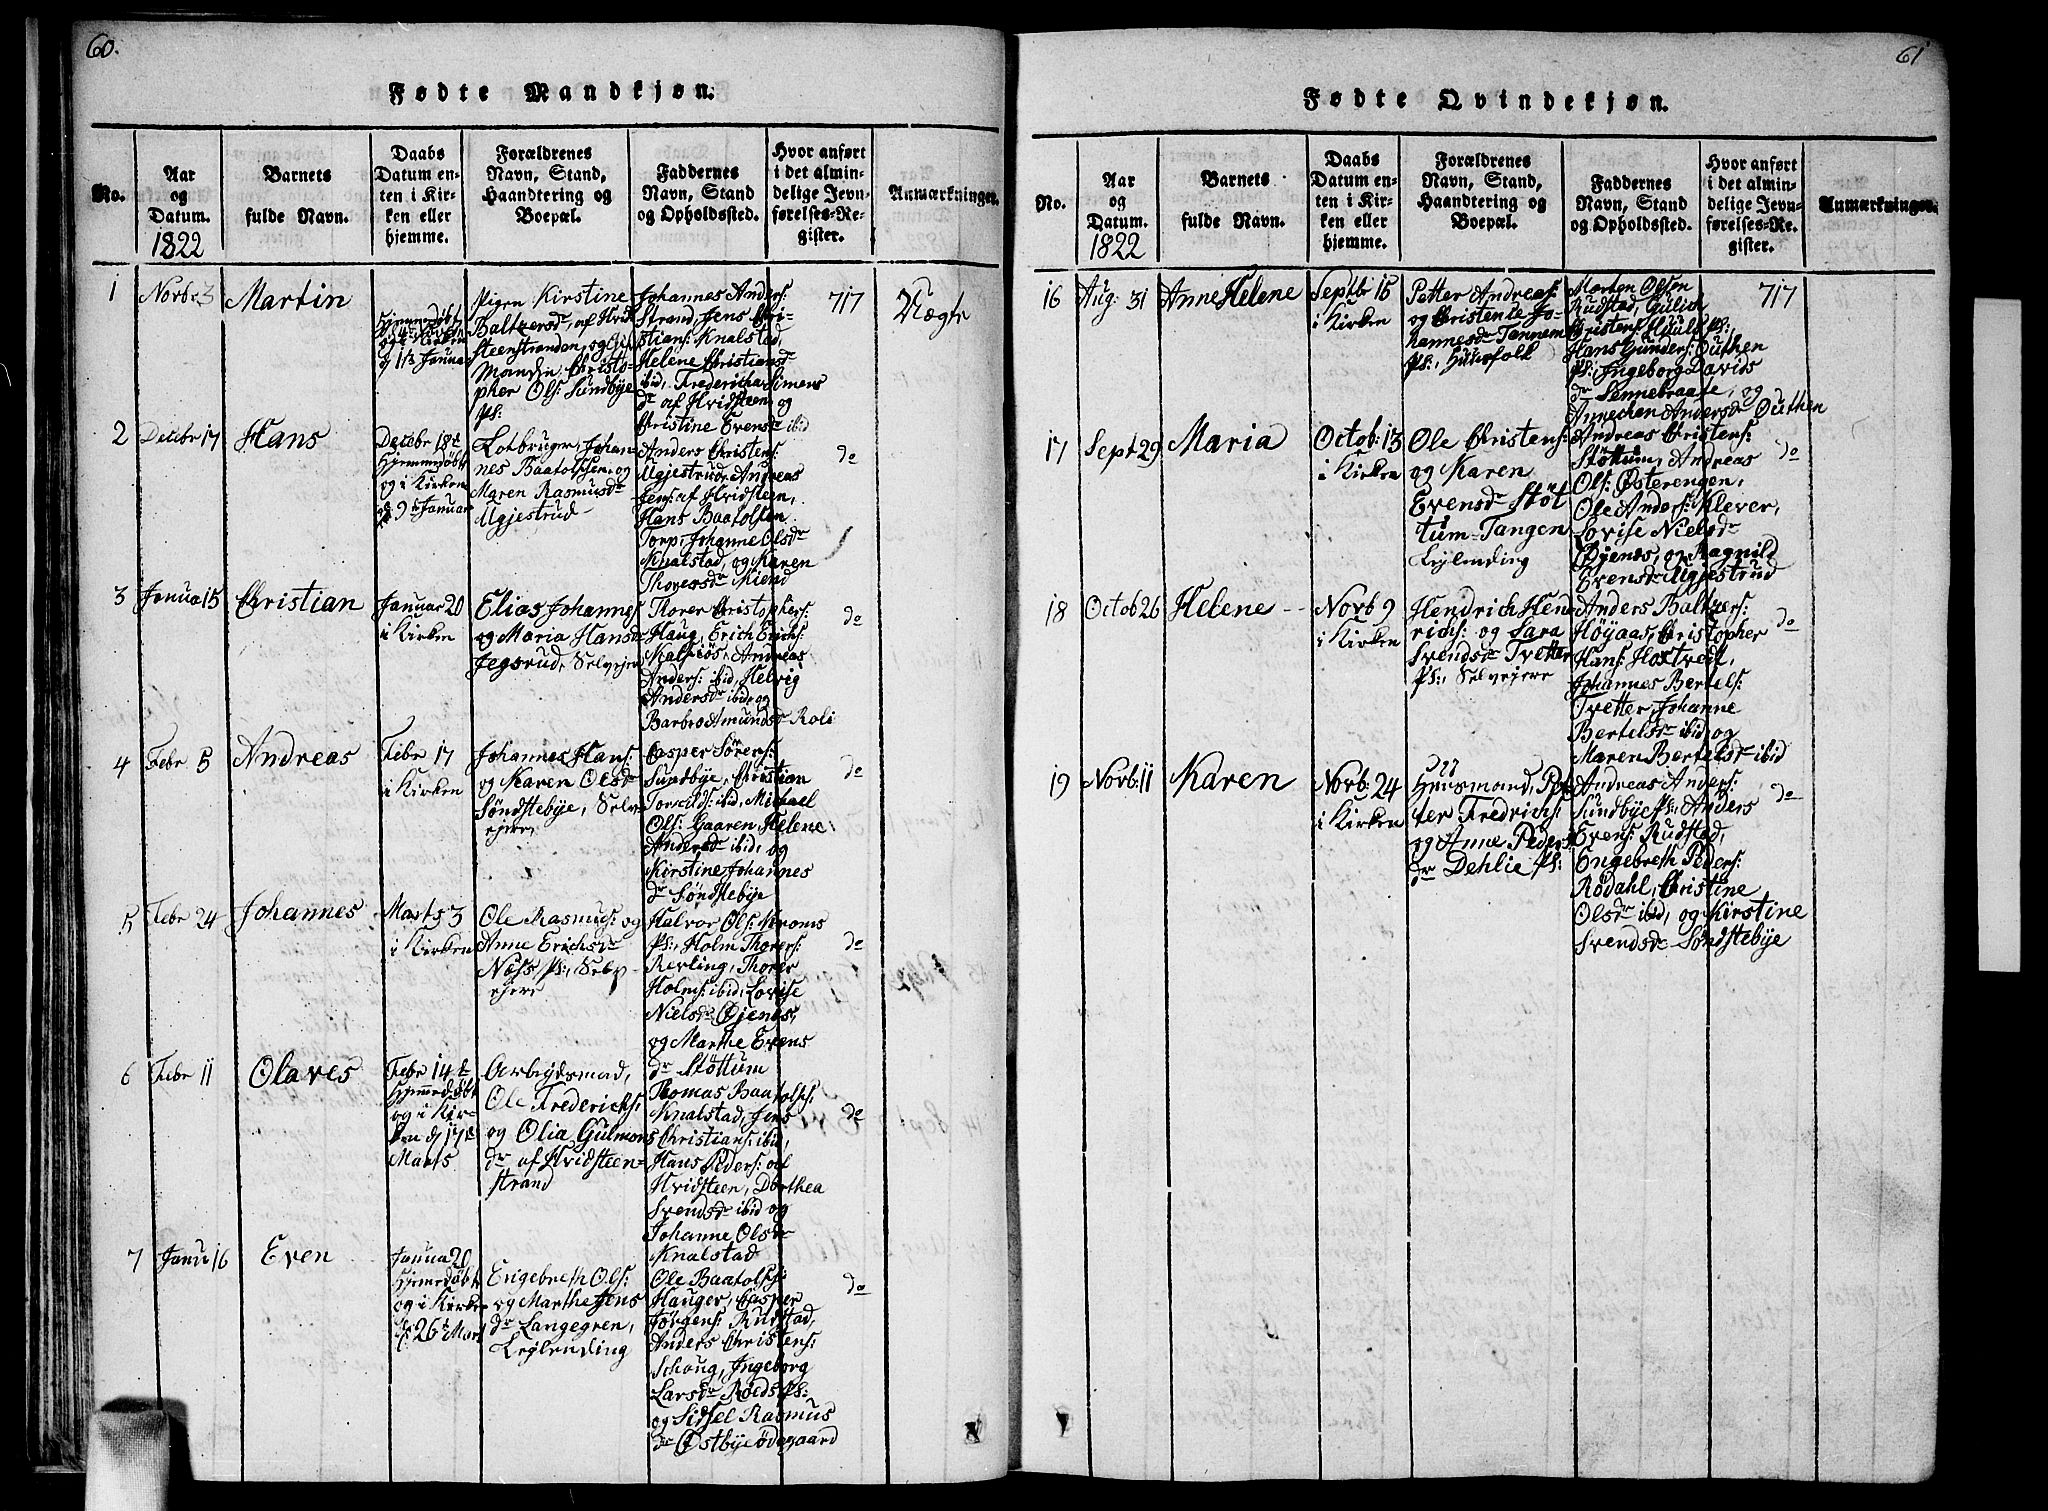 60.
Fødte Mandkjøn.
No.
Aar
og
Datum.
1822
Barnets
fulde Navn.
Daabs
Datum en-
ten i Kir-
ken eller
hjemme.
Forældrenes
Navn, Stand,
Haandtering og
Boepæl.
Faddernes
Navn, Stand
og Opholdssted.
Hvor anført
i det almin-
delige Jevn-
førelses-Re-
gister.
Anmærkninger.
1
Novbr 3
Martin
Hjemmedøbt
og i Kirken
Januar
Pigen Kirstine
Baltzersdr af Hvid-
steenstranden, og
Christo-
pher Ols: Sundbye
Ps:
Johannes Anders:
Strand, Jens Chri-
stians: Knalstad,
Helene Christiansdr
ibid, Fredericha Simens
dr af Hvidsteen og
Christine Evensdr ibid
717
Uægte
2
Decebr 17
Hans
Decebr 18te
Hjemmedøbt
og i Kirken
9de Januar
Johan-
nes Baatolfsen og
Maren Rasmusdr
Ugjestrud
Anders Christens:
Ugjestrud, Andreas
Jens: af Hvidsteen,
Hans Baatolfsen
Torp, Johanne Olsdr
Knalstad, og Karen
Thoresdr Kiend
do
3
Janua 15
Christian
Januar 20
i Kirken
Elias Johannes
og Maria Hansdr
Jegsrud, Selvejer
Thorer Christophers:
Haug, Erich Erichs:
Kalsiøs, Andreas
Anders: ibid, Helvig
Andersdr ibid og
Barbro Amundsdr Roli
do
4
Febr 5
Andreas
Febr 17
i Kirken
Johannes Hans:
og Karen Olsdr
Søndstebye, Selv-
ejere,
Casper Sörens:
Sundbye, Christian
Torkilds: ibid, Michael
Ols: Gaaren, Helene
Andersdr ibid, og
Kirstine Johannes
dr Søndstebye
do
5
Febr 24
Johannes
Marts 3
i Kirken
Ole Rasmus: og
Anne Erichsdr
Næss Ps:, Selv-
ejere
Halvor Ols: Kroms
Ps:, Holm Thorers:
Revling, Thorer
Holms: ibid, Lovise
Nielsdr Øjenes,
og Marthe Evens
dr Støttum
do
6
Febr 11
Olaves
Febr 14de
Hjemmedøbt
og i Kir-
ken d. 17de
Marts
Arbejdsmad,
Ole Frederichs:
og Olia Gulmons
dr af Hvidsteen-
strand
Thomas Baatolfs:
Knalstad, Jens
Christians: ibid,
Hans Peders: af
Hvidsteen, Dorthea
Svendsdr ibid og
Johanne Olsdr
Knalstad
do
7
Janu 16
Even
Janua 20
Hjemedøbt
og i Kirken
d: 26t Mart
Engebreth Ols:
og Marthe Jens
dr Langegren,
Lejlending
Ole Baatolfs:
Hauger, Casper
Jørgens: Rudstad,
Anders Christens:
Schoug, Ingeborg
Larsdr Roeds Ps:
og Sidsel Rasmus
dr Østbyeødegaard
do
61
Fødte Qvindekjøn.
No.
Aar
og
Datum.
1822
Barnets
fulde Navn.
Daabs
Datum en-
ten i Kir-
ken eller
hjemme.
Forældrenes
Navn, Stand,
Haandtering og
Boepæl.
Faddernes
Navn, Stand
og Opholdssted.
Hvor anført
i det almin-
delige Jevn-
førelses-Re-
gister.
Anmærkninger.
16
Aug: 31
Anne Helene
Septbr 15
i Kirken
Petter Andreas:
og Christence Jo-
hannesdr Tannem
Ps:,
Morten Olsen
Rudstad, Gulich
Christens:
Hans Gunders: Outhen
Ps:, Ingeborg Davids
dr Sennebraate, og
Annechen Andersdr Outhen
717
17
Sept 29
Maria
Octob: 13
i Kirken
Ole Christens:
og Karen
Evensdr Støt
tum-Tangen
Lejlending
Andreas Christens:
Støttum, Andreas
Ols: Østerengen,
Ole Anders: Klever,
Lovise Nielsdr
Øjenes, og Ragnild
Evensdr Ugjestrud
do
18
Octob 26
Helene
Novb 9
i Kirken
Hendrich Hen
richs: og Sara
Svendsdr Tvetter
Ps:, Selvejere
Anders Baltzers:
Høyaas, Christopher
Hans: Hostvedt,
Johannes Bertels:
Tvetter, Johanne
Bertelsdr ibid og
Maren Bertelsdr ibid
do
19
Novb: 11
Karen
Novb: 24
i Kirken
Huusmand, Pet
ter Fredrichs:
og Anne Peders
dr Dehlie Ps:
Andreas Anders:
Sundbye Ps:, Anders
Evens: Rudstad,
Engebreth Peders:
Rødahl, Christine
Olsdr ibid, og Kirstine
Svendsdr Søndstebye
do